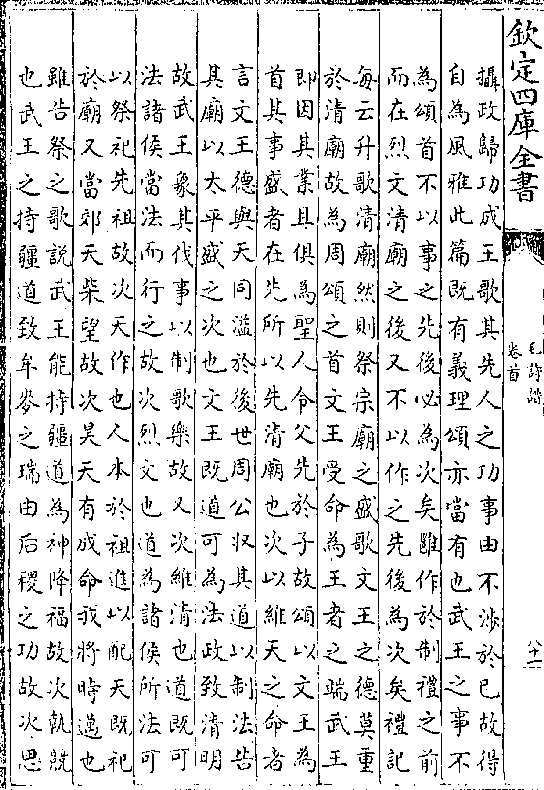 欽定四庫全書
毛詩譜
卷首
八十一
攝政歸功成王歌其先人之功事由不涉於已故得
自為風雅此篇既有義理頌亦當有也武王之事不
為頌首不以事之先後必為次矣雖作於制禮之前
而在烈文清廟之後又不以作之先後為次矣禮記
每云升歌清廟然則祭宗廟之盛歌文王之德莫重
於清廟故為周頌之首文王受命為王者之端武王
即因其業且俱為聖人令父先於子故頌以文王為
首其事盛者在先所以先清廟也次以維天之命者
言文王德與天同溢於後世周公収其道以制法告
其廟以太平盛之次也文王既道可為法政致清明
故武王象其伐事以制歌樂故又次維清也道既可
法諸侯當法而行之故次烈文也道為諸侯所法可
以祭祀先祖故次天作也人本於祖進以配天既祀
於廟又當郊天柴望故次昊天有成命我將時邁也
雖告祭之歌說武王能持疆道為神降福故次執競
也武王之持疆道致牟麥之瑞由后稷之功故次思